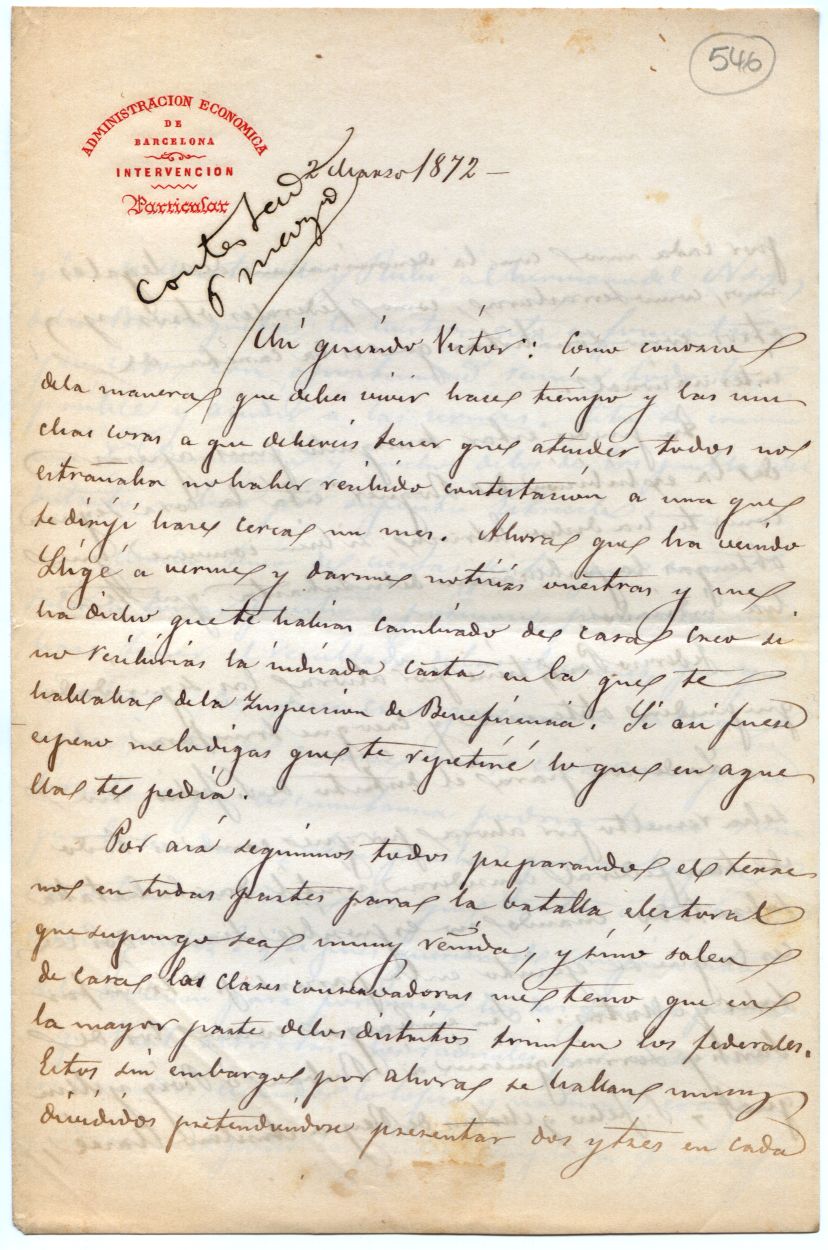 546
ADMINISTRACION ECONOMICA
DE
BARCELONA
INTERVENCION
Particular
2 Marzo 1872 —
Contestad
6 marzo
Mi querido Victor: Como conozco
dela manera que debes vivir hace tiempo y las mu
chas cosas a que debereis tener que atender todos no
estrañaba nohaber recibido contestacion a una que
te dirijí hace cerca un mes. Ahora que ha venido
Llugé a verme y darme noticias vuestras y me
ha dicho que te habias cambiado de casa creo si
no recibirias la indicada carta en la que te
hablaba dela Inspeccion de Beneficencia. Si asi fuese
espero melodigas que te repetiré lo que en aque
lla te pedia.
Por acá seguimos todos preparando el terre
no en todas partes para la batalla electoral
que supongo sea muy reñida, y sino salen
de casa las clases conservadoras me temo que en
la mayor parte delos distritos triunfen los federales.
Estos sin embargo por ahora se hallan muy
divididos pretendiendose presentar dos ytres en cada